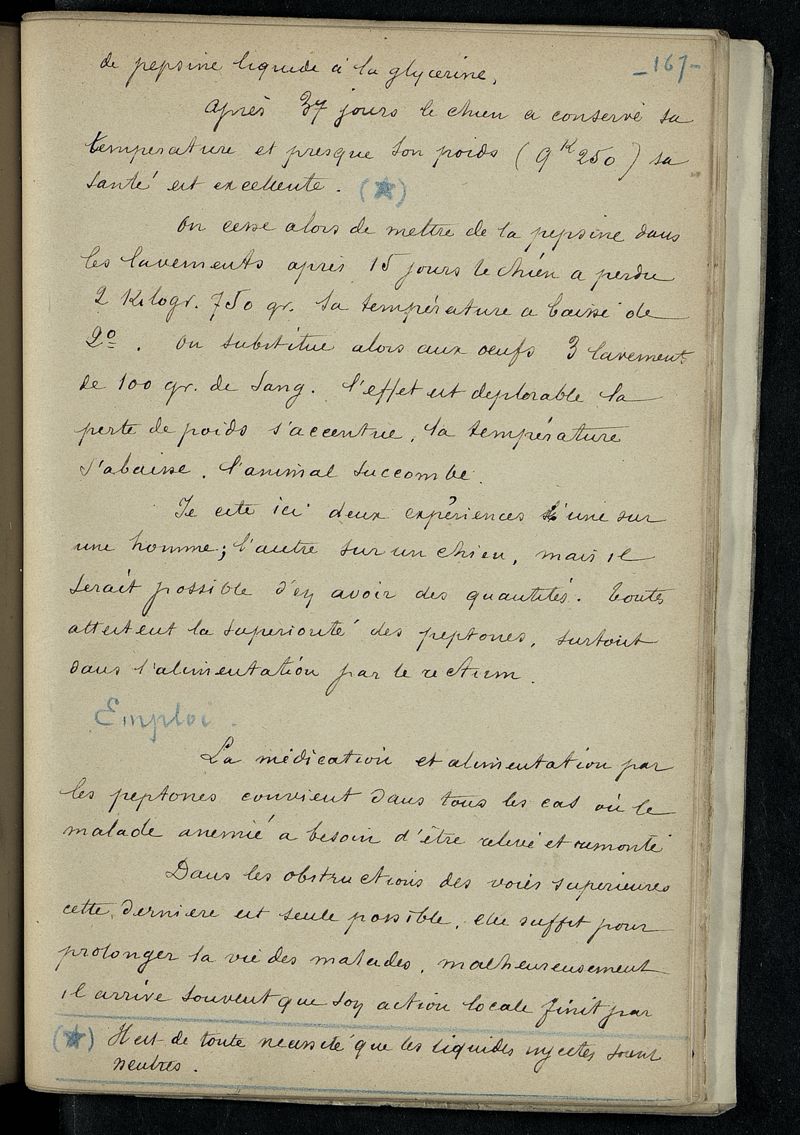 -167-
de pepsine liquide à la glycerine.
Après 37 jours le chien a conservé sa
température et presque son poids (9K250) sa
santé est excellente. (★)
On cesse alors de mettre de la pepsine dans
les lavements après 15 jours le chien a perdu
2 Kilogr. 750 gr. sa température a baissé de
2º. On substitue alors aux oeufs 3 lavements
de 100 gr. de sang. l'effet est deplorable la
perte de poids s'accentue, la température
s'abaisse. l'animal succombe.
Je cite ici deux expériences l'une sur
une homme; l'autre sur un chien, mais il
serait possible d'en avoir des quantités. Toutes
attestent la superiorité des peptones, surtout
dans l'alimentation par le rectum.
Emploi.
La médication et alimentation par
les peptones convient dans tous les cas où le
malade anemié a besoin d'être relevé et remonté
Dans les obstructions des voies superieures
cette derniere est seule possible, elle suffit pour
prolonger la vie des malades, malheureusement
il arrive souvent que son action locale finit par
(★) Il est de toute necessité que les liquides injectés soient
neutres.